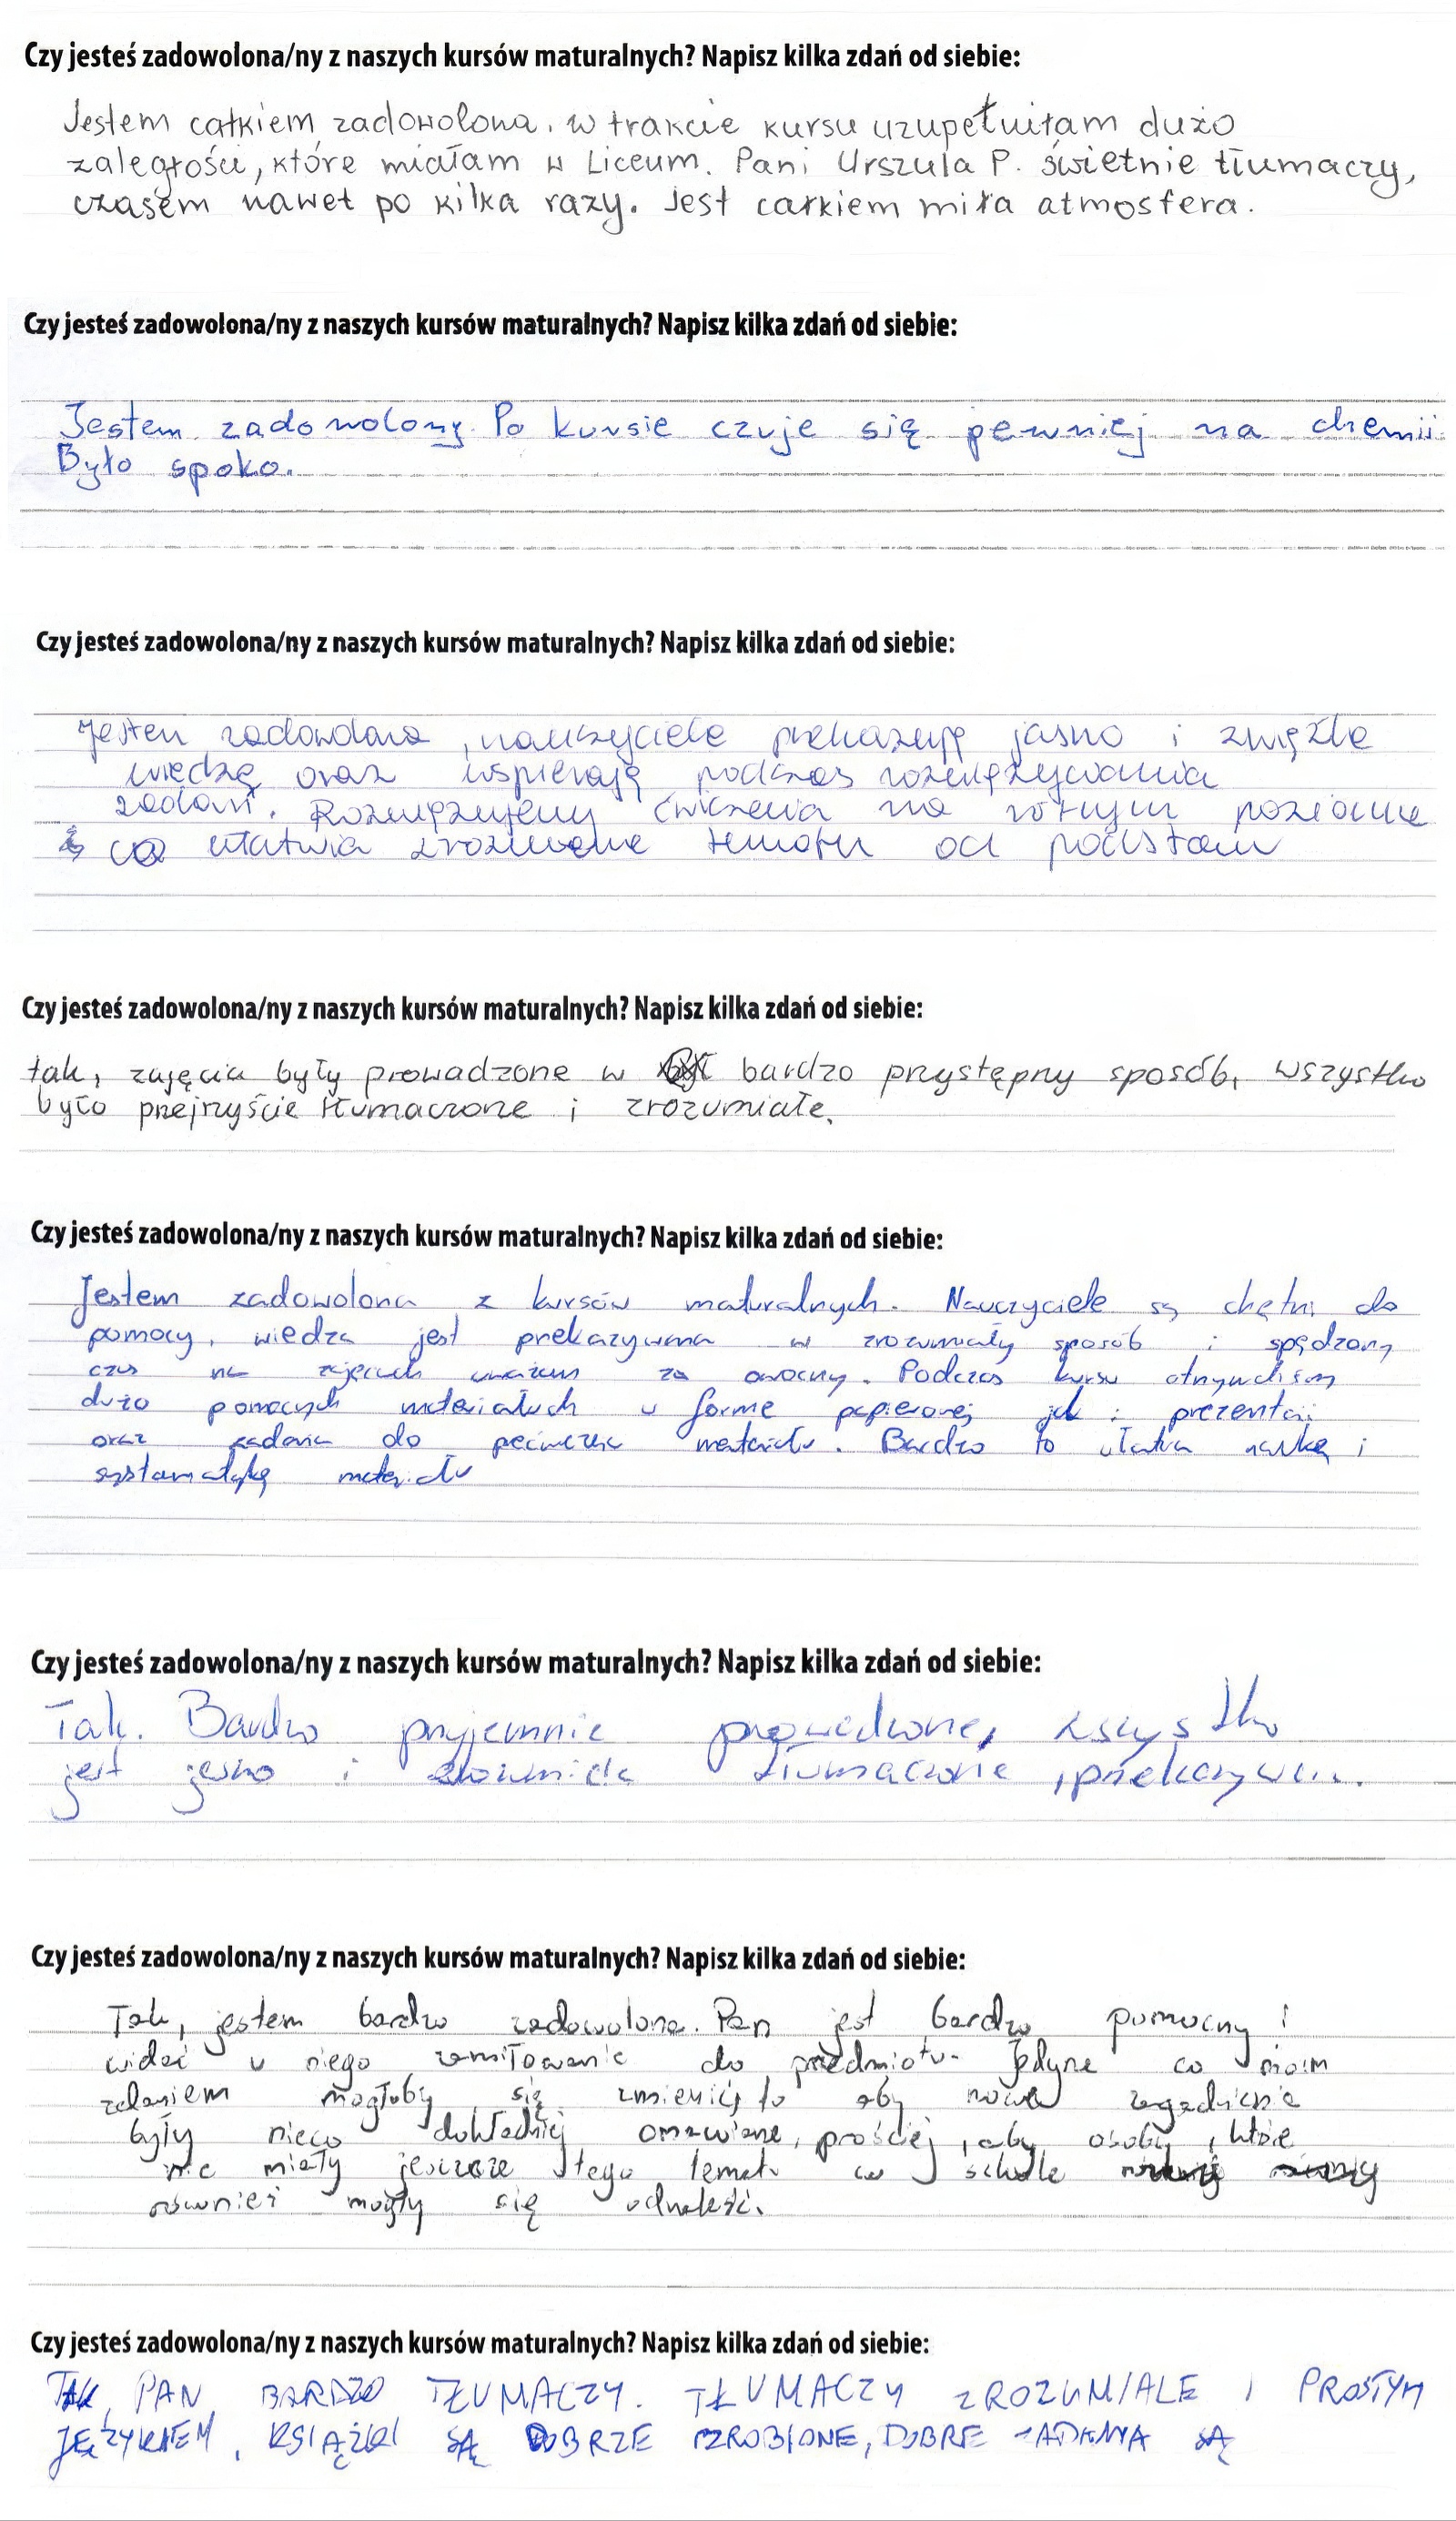 Czy jesteś zadowolona/ny z naszych kursów maturalnych? Napisz kilka zdań od siebie:
Jestem całkiem zadowolona. w trakcie kursu uzupełniłam dużo
zaległości, które miałam w Liceum. Pani Urszula P. świetnie tłumaczy,
czasem nawet po kilka razy. Jest całkiem miła atmosfera.
Czy jesteś zadowolona/ny z naszych kursów maturalnych? Napisz kilka zdań od siebie:
Jestem zadowolony. Po kursie czuje się pewniej na chemii.
Było spoko.
Czy jesteś zadowolona/ny z naszych kursów maturalnych? Napisz kilka zdań od siebie:
Jestem zadowolona, nauczyciele przekazują jasno i zwięźle
wiedzę oraz wspierają podczas rozwiązywania
zadań. Rozwiązujemy ćwiczenia na różnym poziomie
co ułatwia zrozumienie tematu od podstaw
Czy jesteś zadowolona/ny z naszych kursów maturalnych? Napisz kilka zdań od siebie:
tak, zajęcia były prowadzone w bardzo przystępny sposób, wszystko
było przejrzyście tłumaczone i zrozumiałe.
Czy jesteś zadowolona/ny z naszych kursów maturalnych? Napisz kilka zdań od siebie:
Jestem zadowolona z kursów maturalnych. Nauczyciele są chętni do
pomocy, wiedza jest przekazywana w zrozumiały sposób i spędzony
czas na zajęciach uważam za owocny. Podczas kursu otrzymaliśmy
dużo pomocnych materiałach w formie papierowej jak i prezentacji
oraz zadania do materiału. Bardzo to ułatwia naukę i
systematykę materiału
Czy jesteś zadowolona/ny z naszych kursów maturalnych? Napisz kilka zdań od siebie:
Tak. Bardzo przyjemnie prowadzone, wszystko
jest jasno i tłumaczone,
Czy jesteś zadowolona/ny z naszych kursów maturalnych? Napisz kilka zdań od siebie:
Tak, jestem bardzo zadowolona. Pan jest bardzo pomocny i
widać u niego zamiłowanie do przedmiotu. Jedyne co moim
zdaniem mogłoby się zmienić, to aby nowe zagadnienia
były nieco dokładniej omawiane, prościej, aby osoby, które
nie miały jeszcze tego tematu w szkole
również mogły się odnaleźć.
Czy jesteś zadowolona/ny z naszych kursów maturalnych? Napisz kilka zdań od siebie:
TAK, PAN BARDZO TŁUMACZY. TŁUMACZY ZROZUMIALE I PROSTYM
JĘZYKIEM, KSIĄŻKI SĄ DOBRZE ZROBIONE, DOBRE ZADANIA SĄ